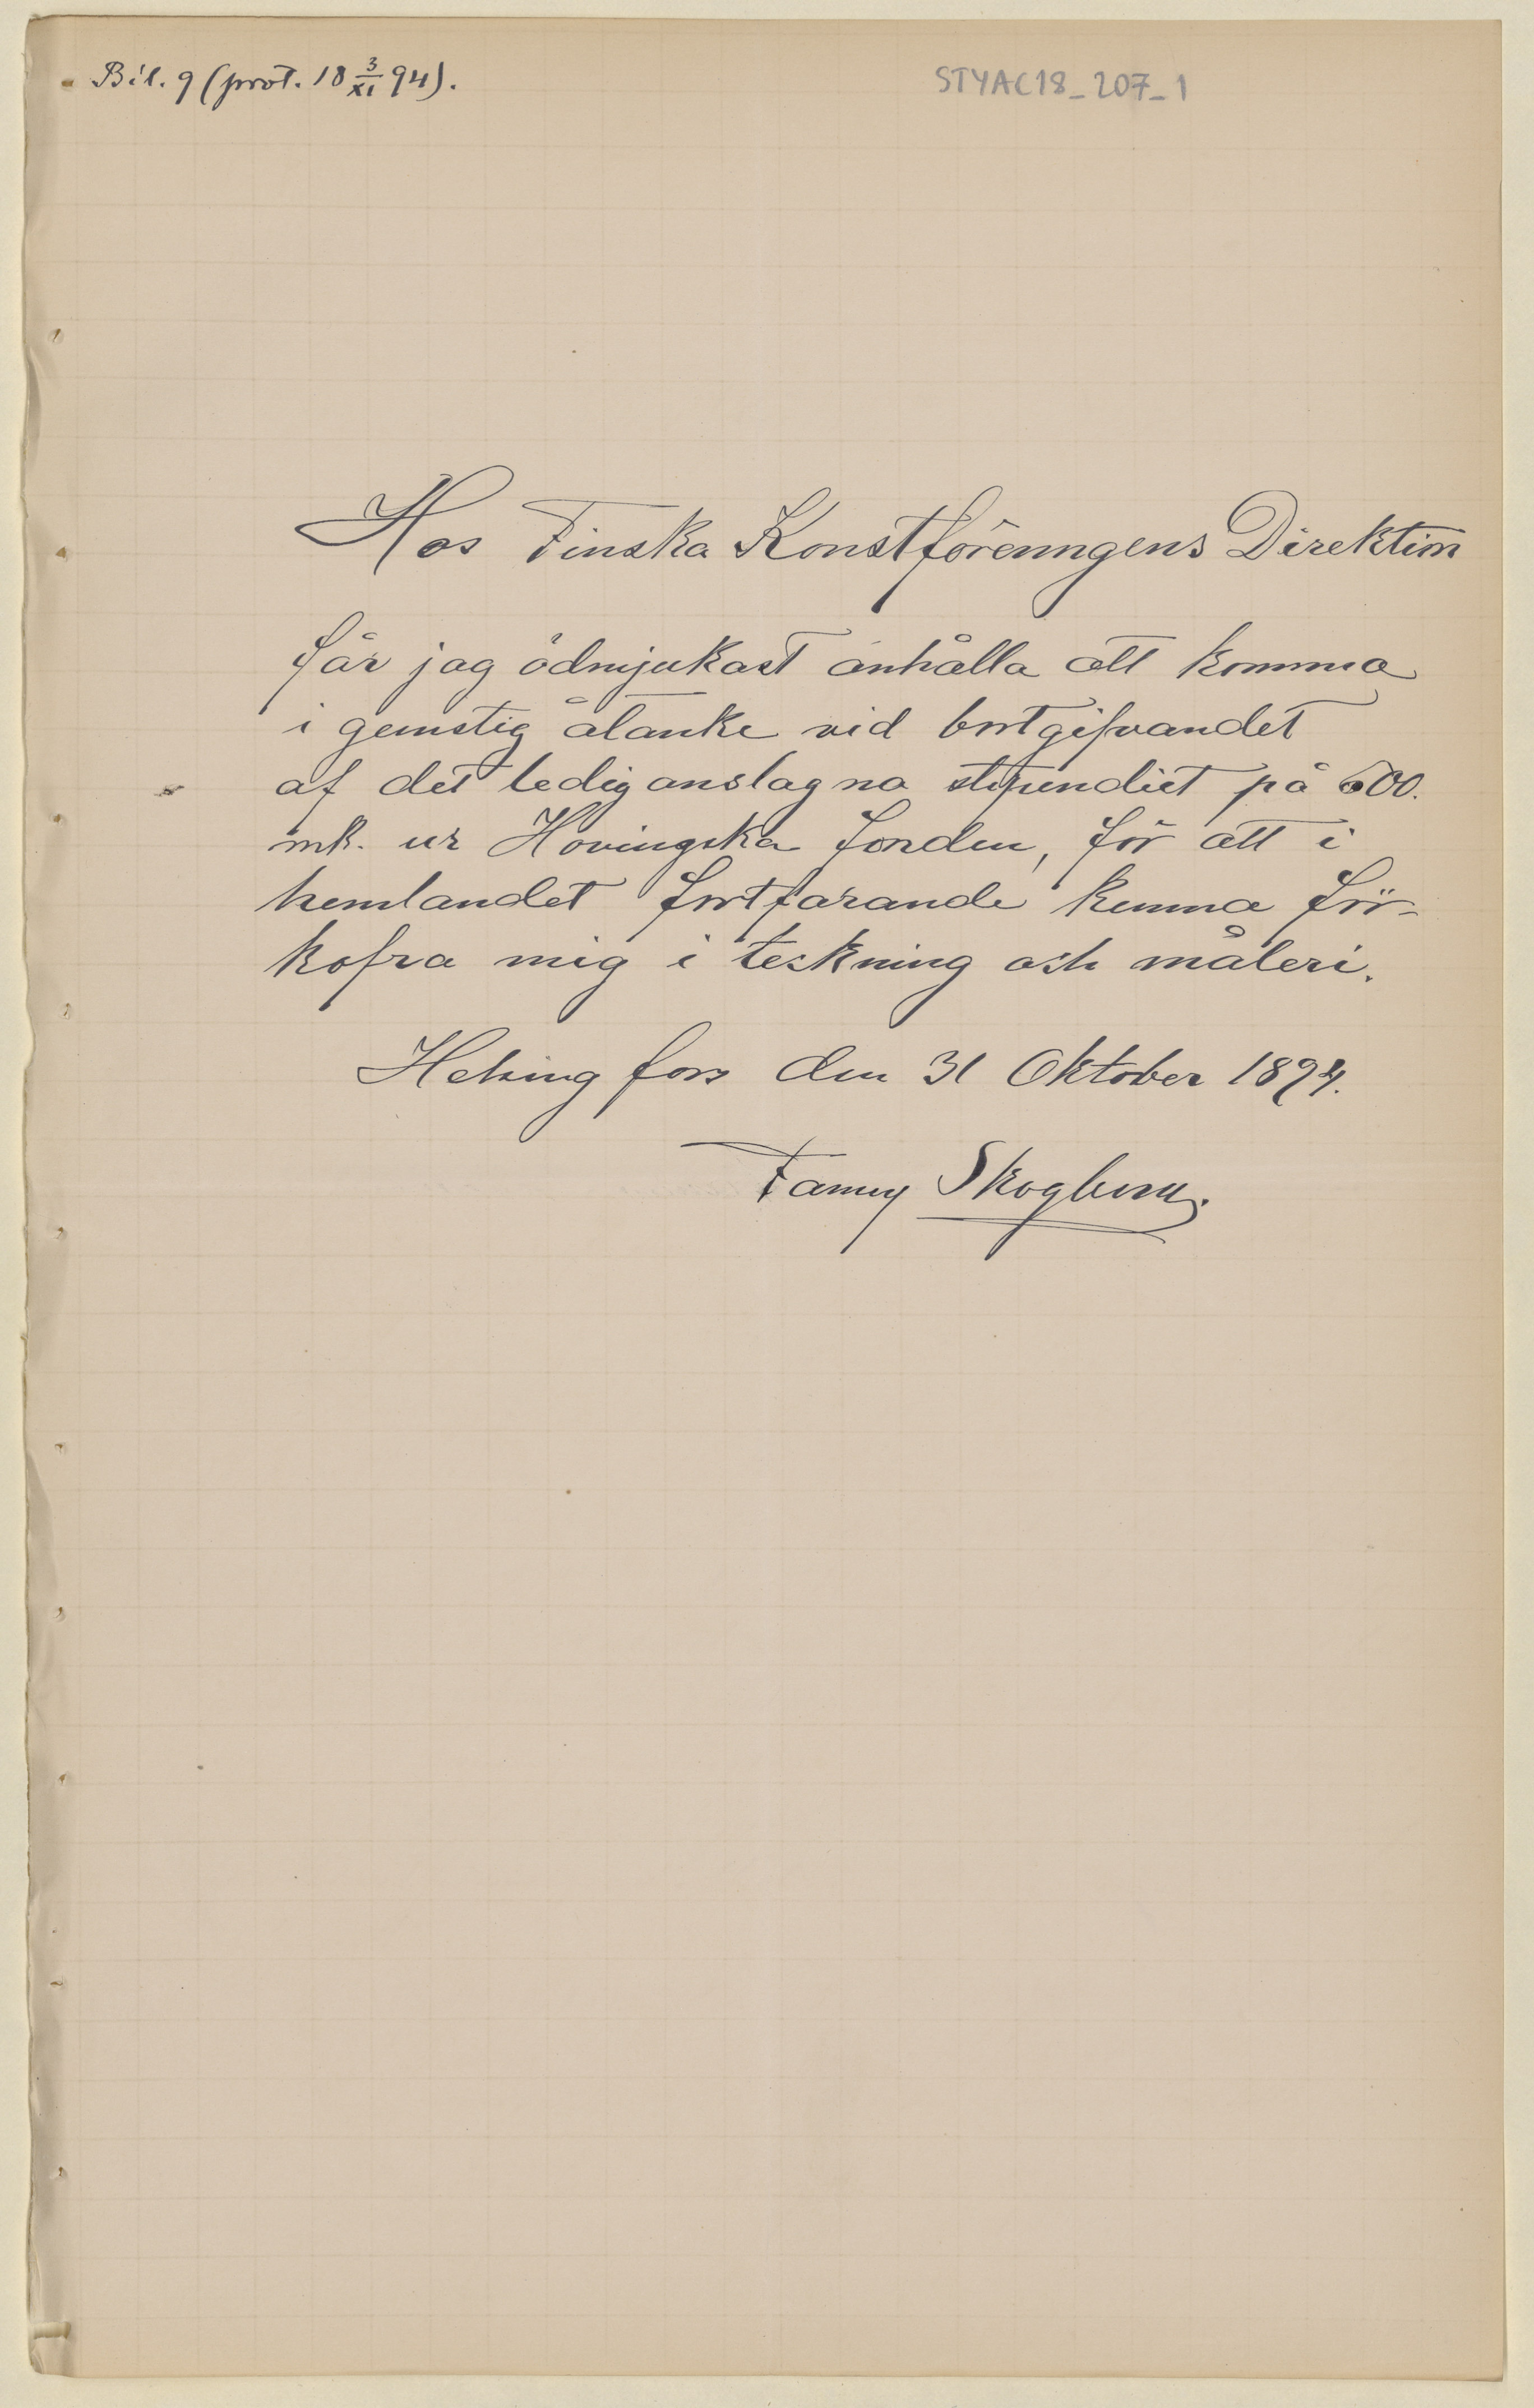 Bil. 9 (prot. 18 3/XI 94).
STYAC18_207_1
Hos Finska Konstföreningens Direktion
får jag ödmjukast anhålla att komma
i gunstig åtanke vid bortgifvandet
af det lediganslagna stipendiet på 600.
mk. ur Hovingska fonden, för att i
hemlandet fortfarande kunna för-
kofra mig i teckning och måleri.
Helsingfors den 31 Oktober 1894.
Fanny